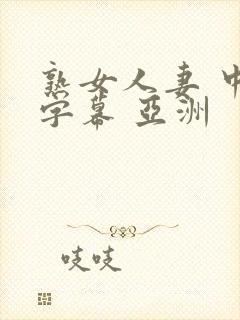 熟女人妻 中
字幕 亞洲
吱吱